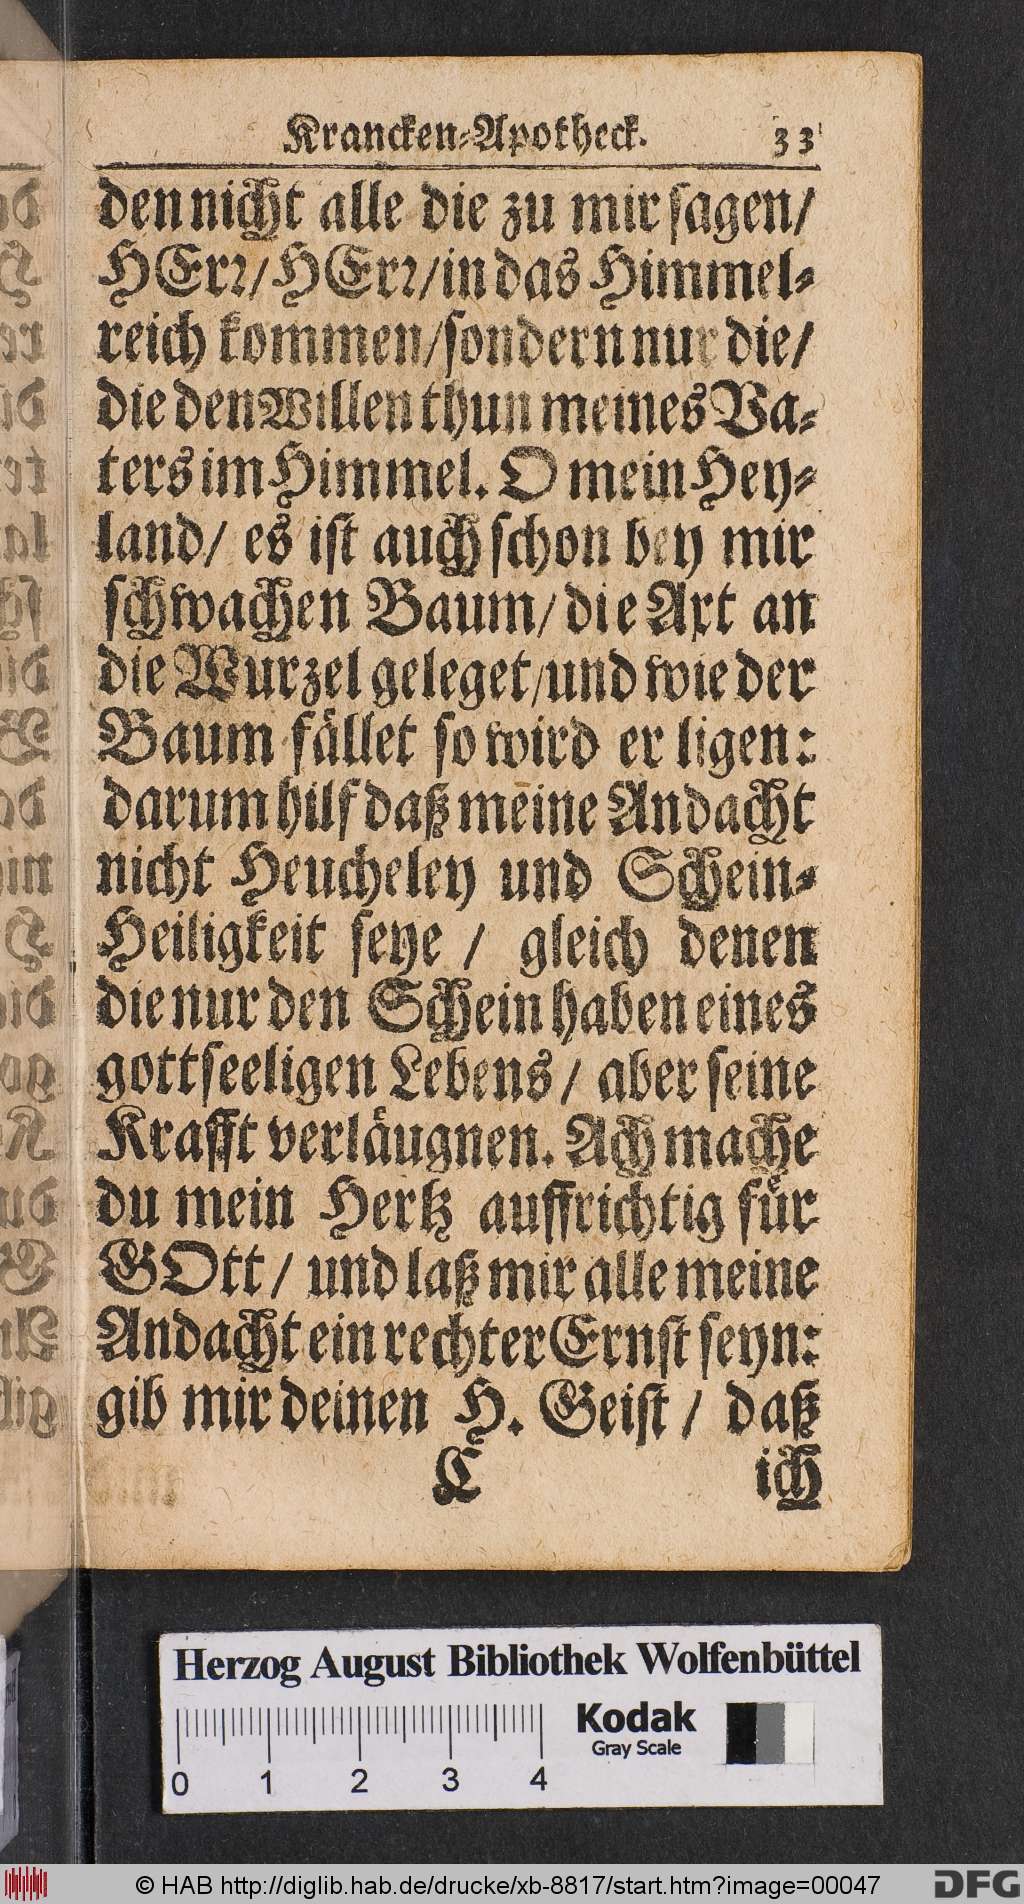 Krancken-Apotheck. 33
den nicht alle die zu mir sagen/
HErꝛ/HErꝛ/in das Himmel-
reich kommen/sondern nur die/
die den Willen thun meines Va-
ters im Himmel. O mein Hey-
land/ es ist auch schon bey mir
schwachen Baum/die Axt an
die Wurzel geleget/und wie der
Baum fället so wird er ligen:
darum hilf daß meine Andacht
nicht Heucheley und Schein-
Heiligkeit seye / gleich denen
die nur den Schein haben eines
gottseeligen Lebens / aber seine
Krafft verläugnen. Ach mache
du mein Hertz auffrichtig für
GOtt / und laß mir alle meine
Andacht ein rechter Ernst seyn:
gib mir deinen H. Geist / daß
C ich
Herzog August Bibliothek Wolfenbüttel
Kodak
Gray Scale
0 1 2 3 4
© HAB http://diglib.hab.de/drucke/xb-8817/start.htm?image=00047
DFG